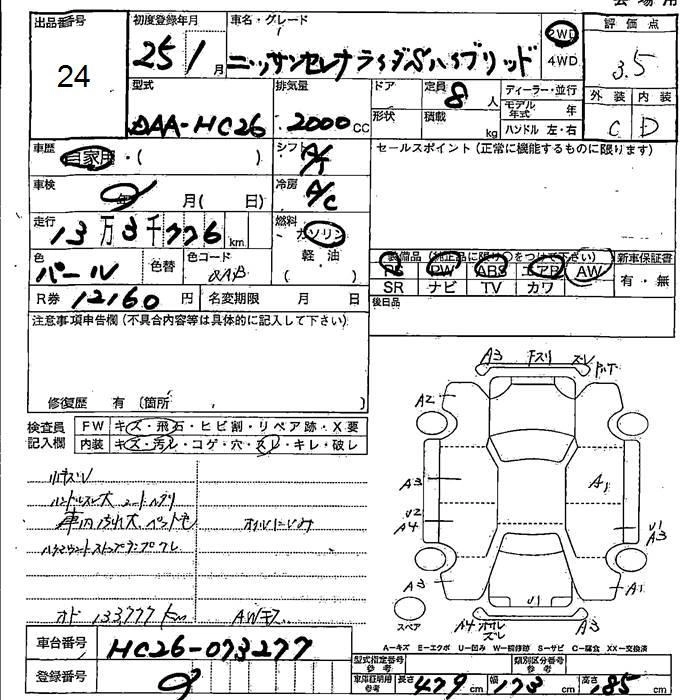 出品番号 24
初度登録年月 25/1月
車名・グレード
ニッサンセレナライダーSハイブリッド
2WD
4WD
評価点 3.5
外装 内装
C D
型式 DAA-HC26
排気量 2000cc
ドア
形状
定員 8人
積載 kg
ディーラー・並行
モデル年式 年
ハンドル 左・右
車歴 自家用・( )
シフト A/T
セールスポイント(正常に機能するものに限ります)
車検 年 月( 日)
冷房 A/C
走行 13万3千776km
燃料 ガソリン
軽・油
( )
色 パール
色替
色コード QAB
装備品(純正品に限り○をつけて下さい)
PS PW ABS エアB AW
SR ナビ TV カワ
新車保証書
有・無
R券 12160円
名変期限 月 日
後日品
注意事項申告欄(不具合内容等は具体的に記入して下さい)
修復歴 有(箇所 )
検査員記入欄
FW キズ・飛石・ヒビ割・リペア跡・X要
内装 キズ・汚レ・コゲ・穴・スレ・キレ・破レ
小キズU
ハンドルスレ大 シートヘタリ
車内汚れ大 ペット毛 オイルにじみ
ハイマウントストップランプワレ
オド 133777km AWキズ
A3 下スリ ズレ
A2
A3
U2
A4
A1
U1
A3
A3
A1
U1
スペア
A4
ズレ
A3
A-キズ E-エクボ U-凹み W-補修跡 S-サビ C-腐食 XX-交換済
車台番号 HC26-073277
登録番号
型式指定番号参考
類別区分番号参考
車庫証明用参考 長さ 479cm 幅 173cm 高さ 85cm